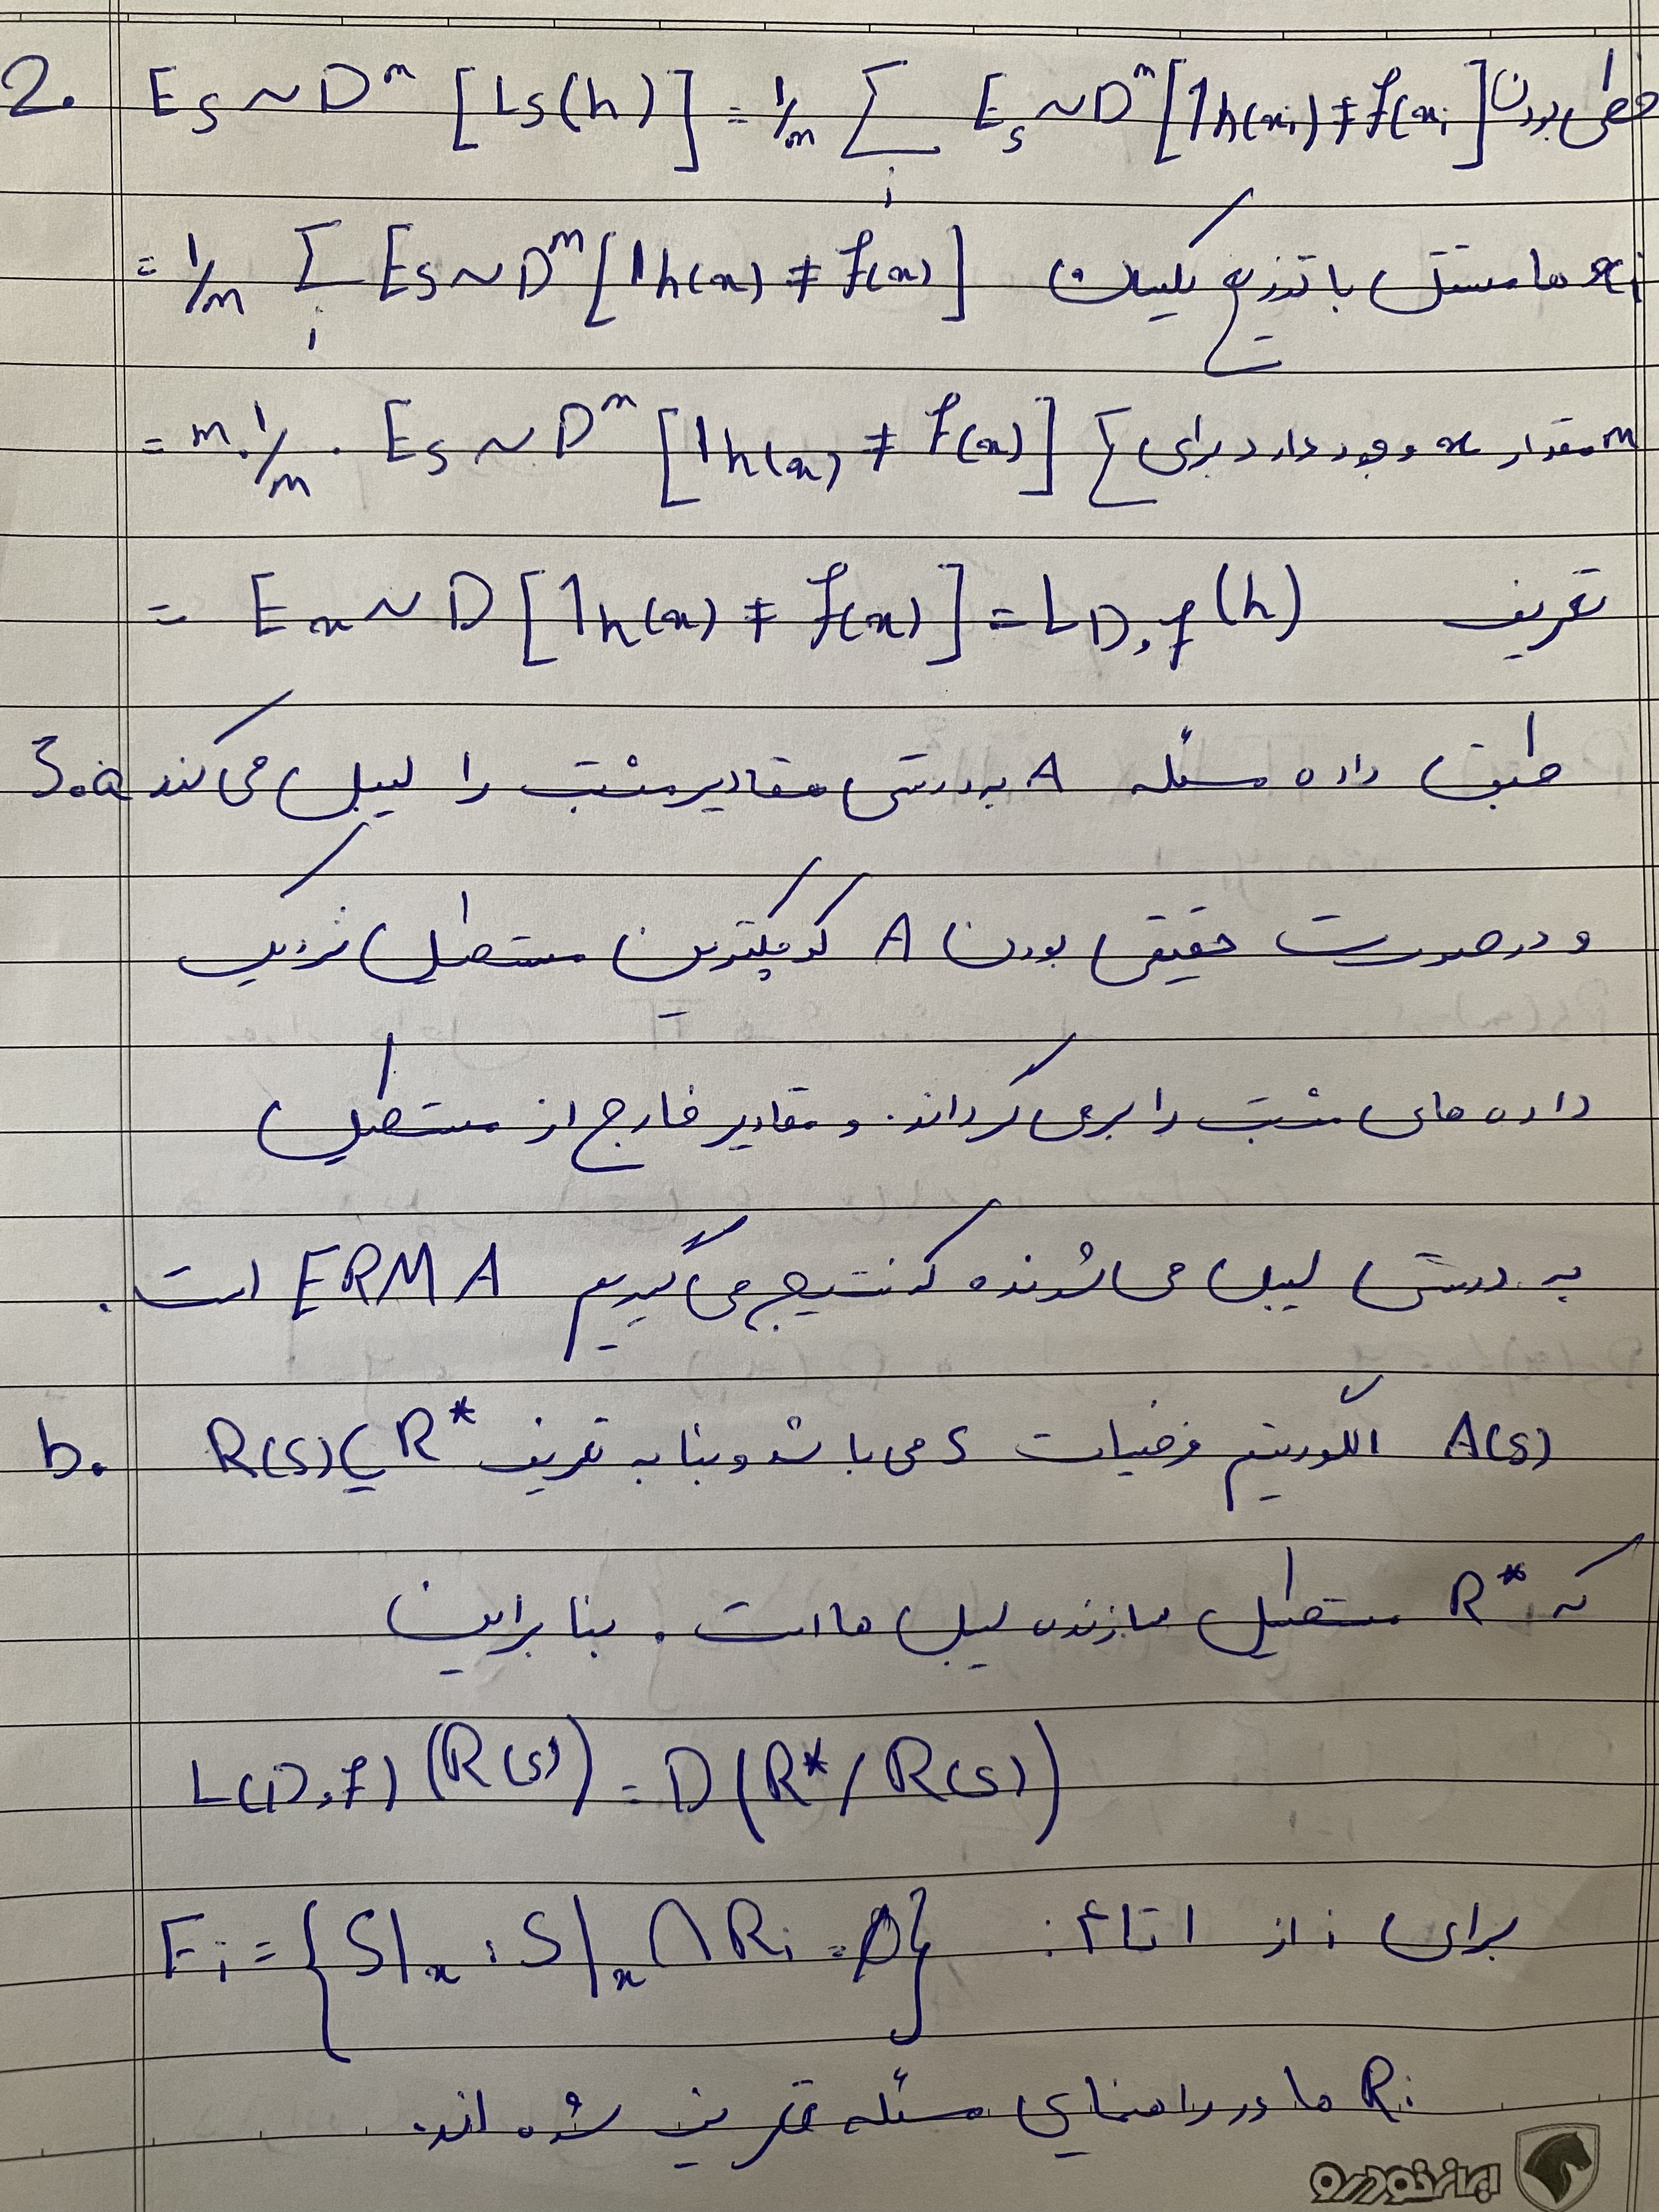 2. E_S ~ D^m [L_S(h)] = 1/m Σ_i E_S ~ D^m [1 h(x_i) ≠ f(x_i] خطی بودن
= 1/m Σ_i E_S ~ D^m [1 h(x) ≠ f(x)] x_i ها مستقل با توزیع یکسان
= m . 1/m . E_S ~ D^m [1 h(x) ≠ f(x)] m مقدار x وجود دارد برای Σ
= E_x ~ D [1 h(x) ≠ f(x)] = L_D,f (h) تعریف
3.a طبق داده مسئله A به درستی مقادیر مثبت را لیبل می کند
و در صورت حقیقی بودن A کوچکترین مستطیل نزدیک
داده های مثبت را برمی گرداند. و مقادیر خارج از مستطیل
به درستی لیبل می شوند که نتیجه می گیریم ERM A است.
b. A(S) الگوریتم فرضیات S می باشد و بنا به تعریف R(S) ⊆ R*
که R* مستطیل سازنده لیبل ها است. بنابراین
L(D,f) (R(S)) = D(R* / R(S))
برای i از ۱ تا ۴: F_i = {S|_x : S|_x ∩ R_i = ∅}
R_i ها در راهنمای مسئله تعریف شده اند.
ایران خودرو